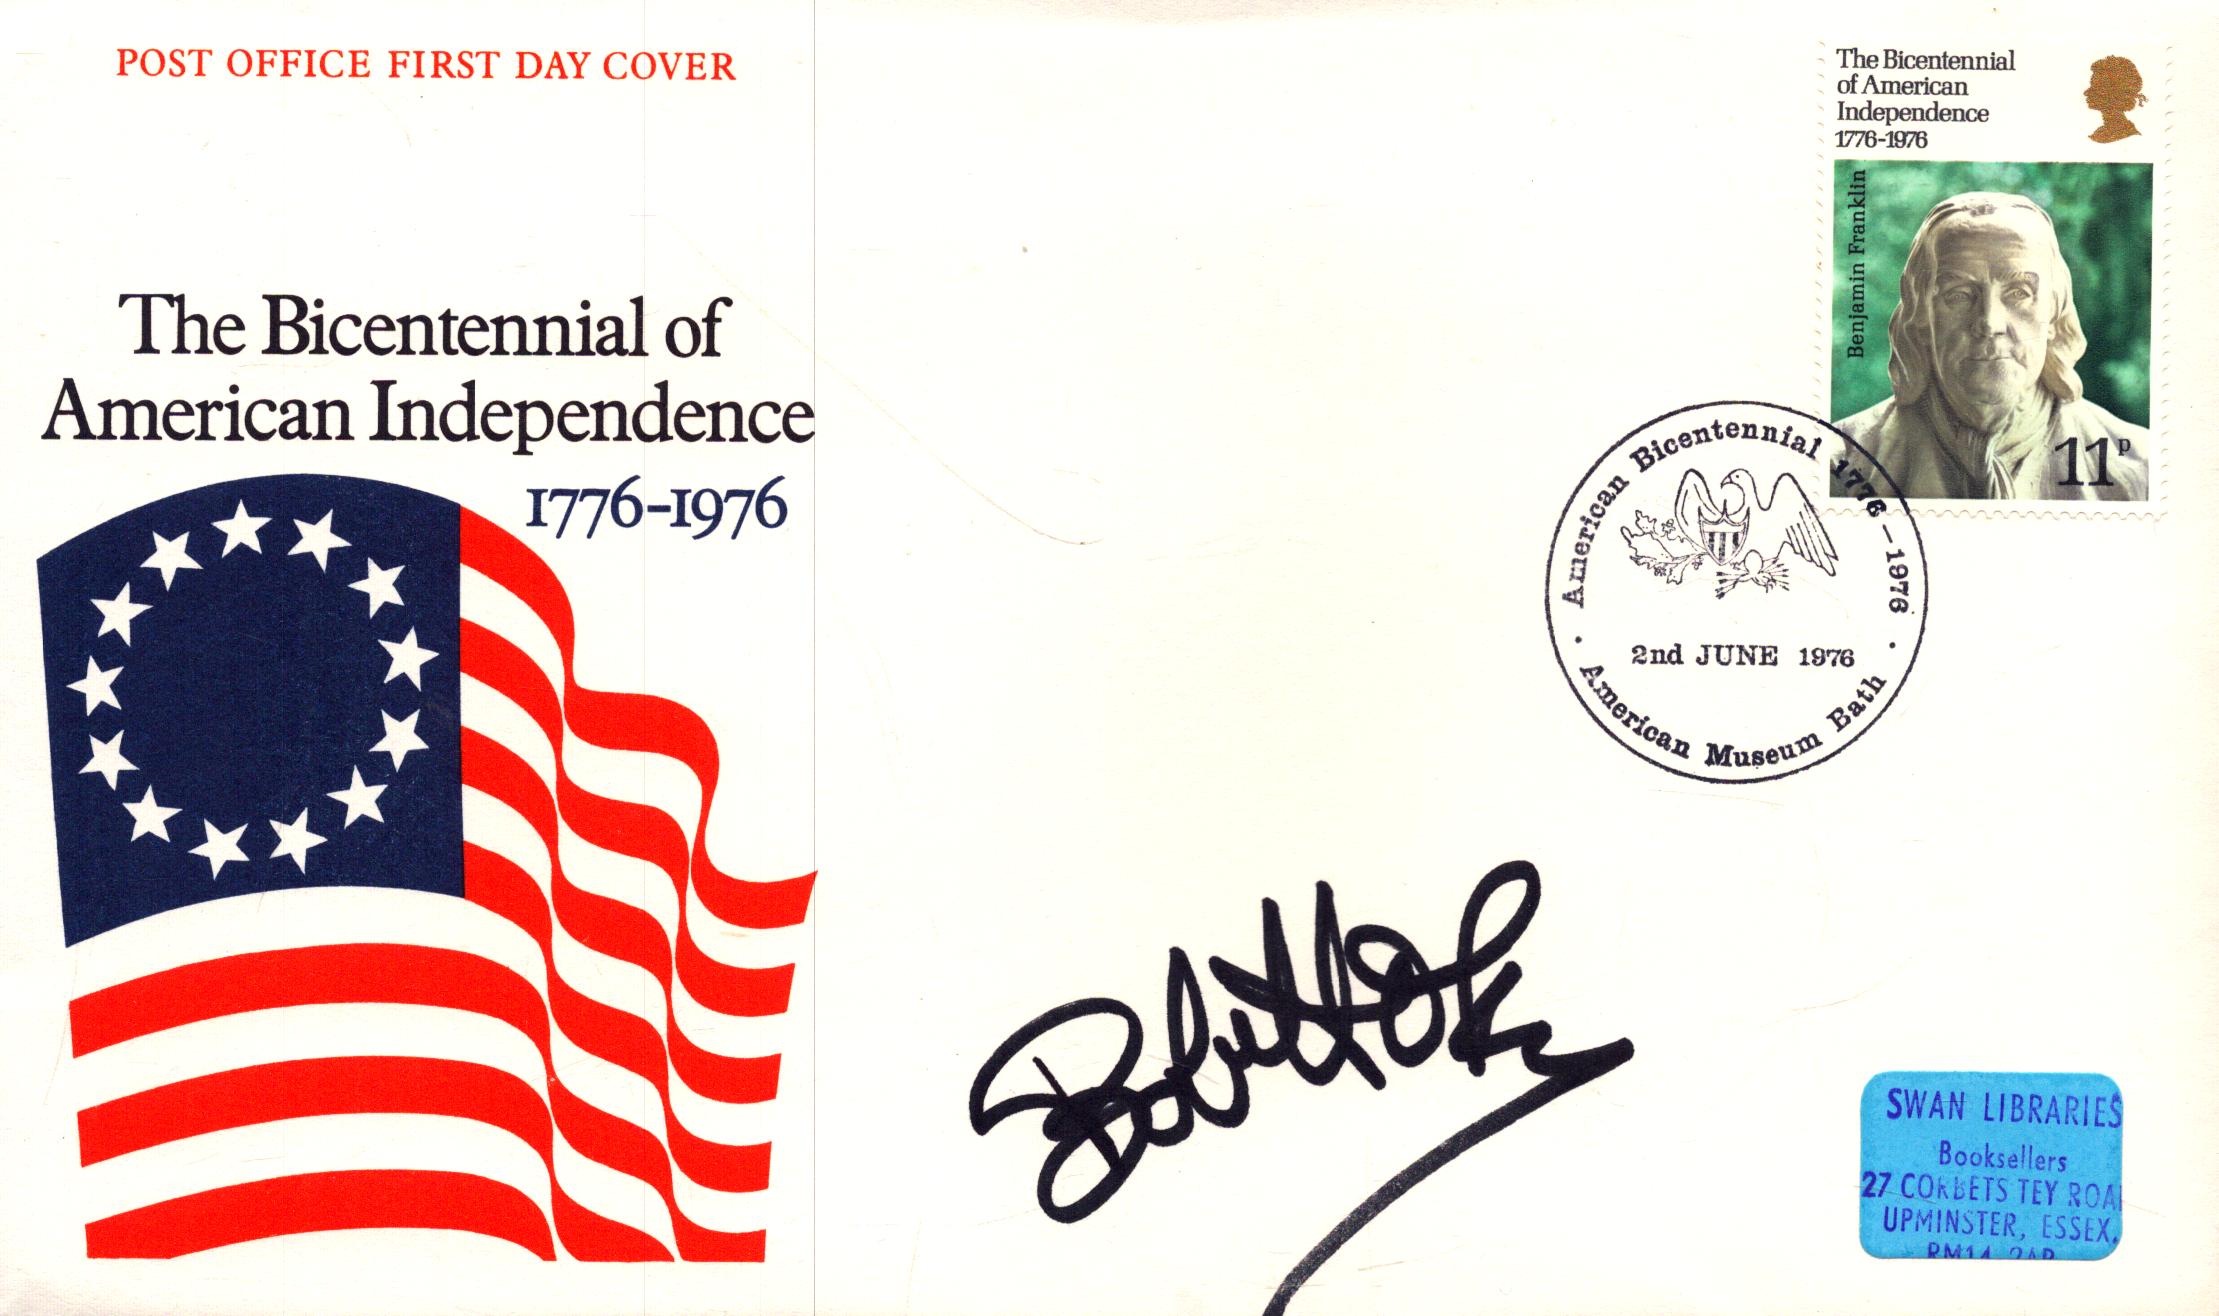 POST OFFICE FIRST DAY COVER
The Bicentennial of
American Independence
1776-1976
The Bicentennial
of American
Independence
1776-1976
Benjamin Franklin
11p
American Bicentennial 1776-1976
2nd JUNE 1976
· American Museum Bath ·
SWAN LIBRARIES
Booksellers
27 CORBETS TEY ROA
UPMINSTER, ESSEX.
RM14 2AP